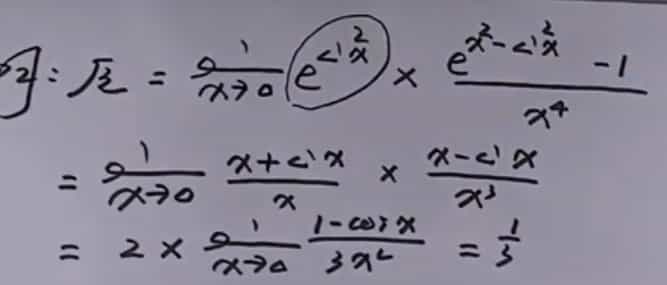 解: 原 = lim x→0 e^{sin²x} × (e^{x²-sin²x} - 1)/x⁴
= lim x→0 (x+sin x)/x × (x-sin x)/x³
= 2 × lim x→0 (1-cos x)/(3x²) = 1/3